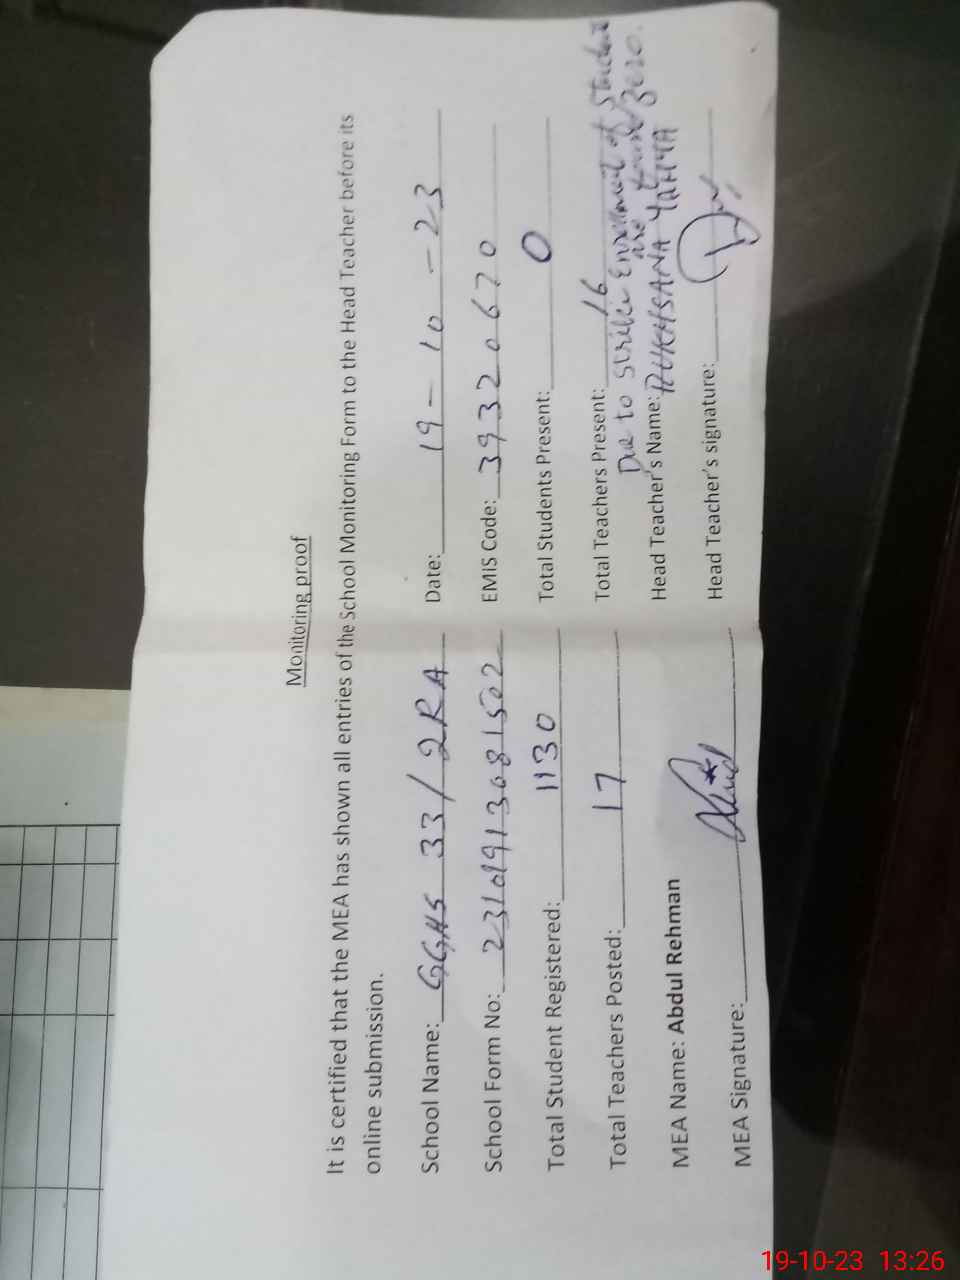 Monitoring proof
It is certified that the MEA has shown all entries of the School Monitoring Form to the Head Teacher before its
online submission.
School Name: GGHS 33/2RA Date: 19-10-23
School Form No: 23101913081502 EMIS Code: 39320670
Total Student Registered: 1130 Total Students Present: 0
Total Teachers Posted: 17 Total Teachers Present: 16
Due to strike Enrollment of Student
are zero.
MEA Name: Abdul Rehman Head Teacher's Name: RUKHSANA YAHYA
MEA Signature: Head Teacher's signature:
19-10-23 13:26